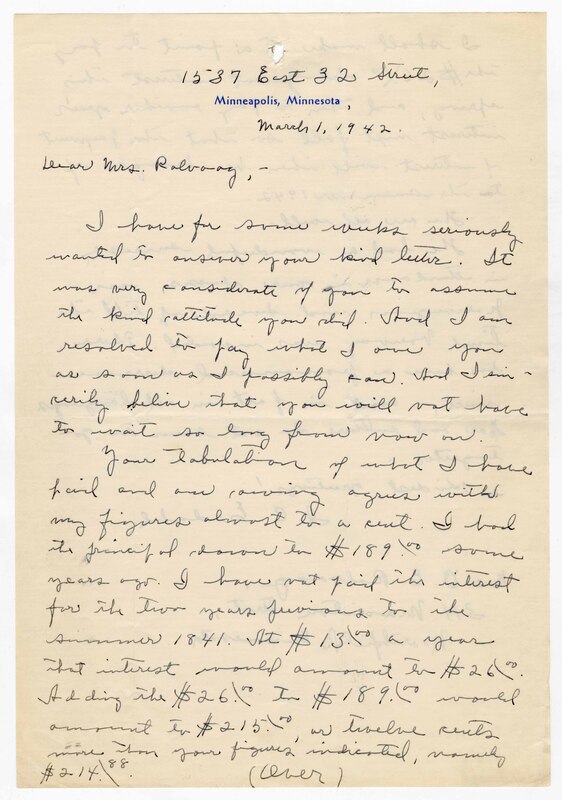 1537 East 32 Street,
Minneapolis, Minnesota,
March 1, 1942.
Dear Mrs. Rolvaag,-
I have for some weeks seriously
wanted to answer your kind letter. It
was very considerate of you to assume
the kind attitude you did. And I am
resolved to pay what I owe you
as soon as I possibly can. And I sin-
cerily belive that you will not have
to wait so long from now on.
Your tabulation of what I have
paid and am owing agrees with
my figures almost to a cent. I had
the principal down to $189.00 some
years ago. I have not paid the interest
for the two years previous to the
summer 1841. At $13.00 a year
that interest would amount to $26.00.
Adding the $26.00 to $189.00 would
amount to $215.00, or twelve cents
more than your figures indicated, namely
$214.88.
(Over)